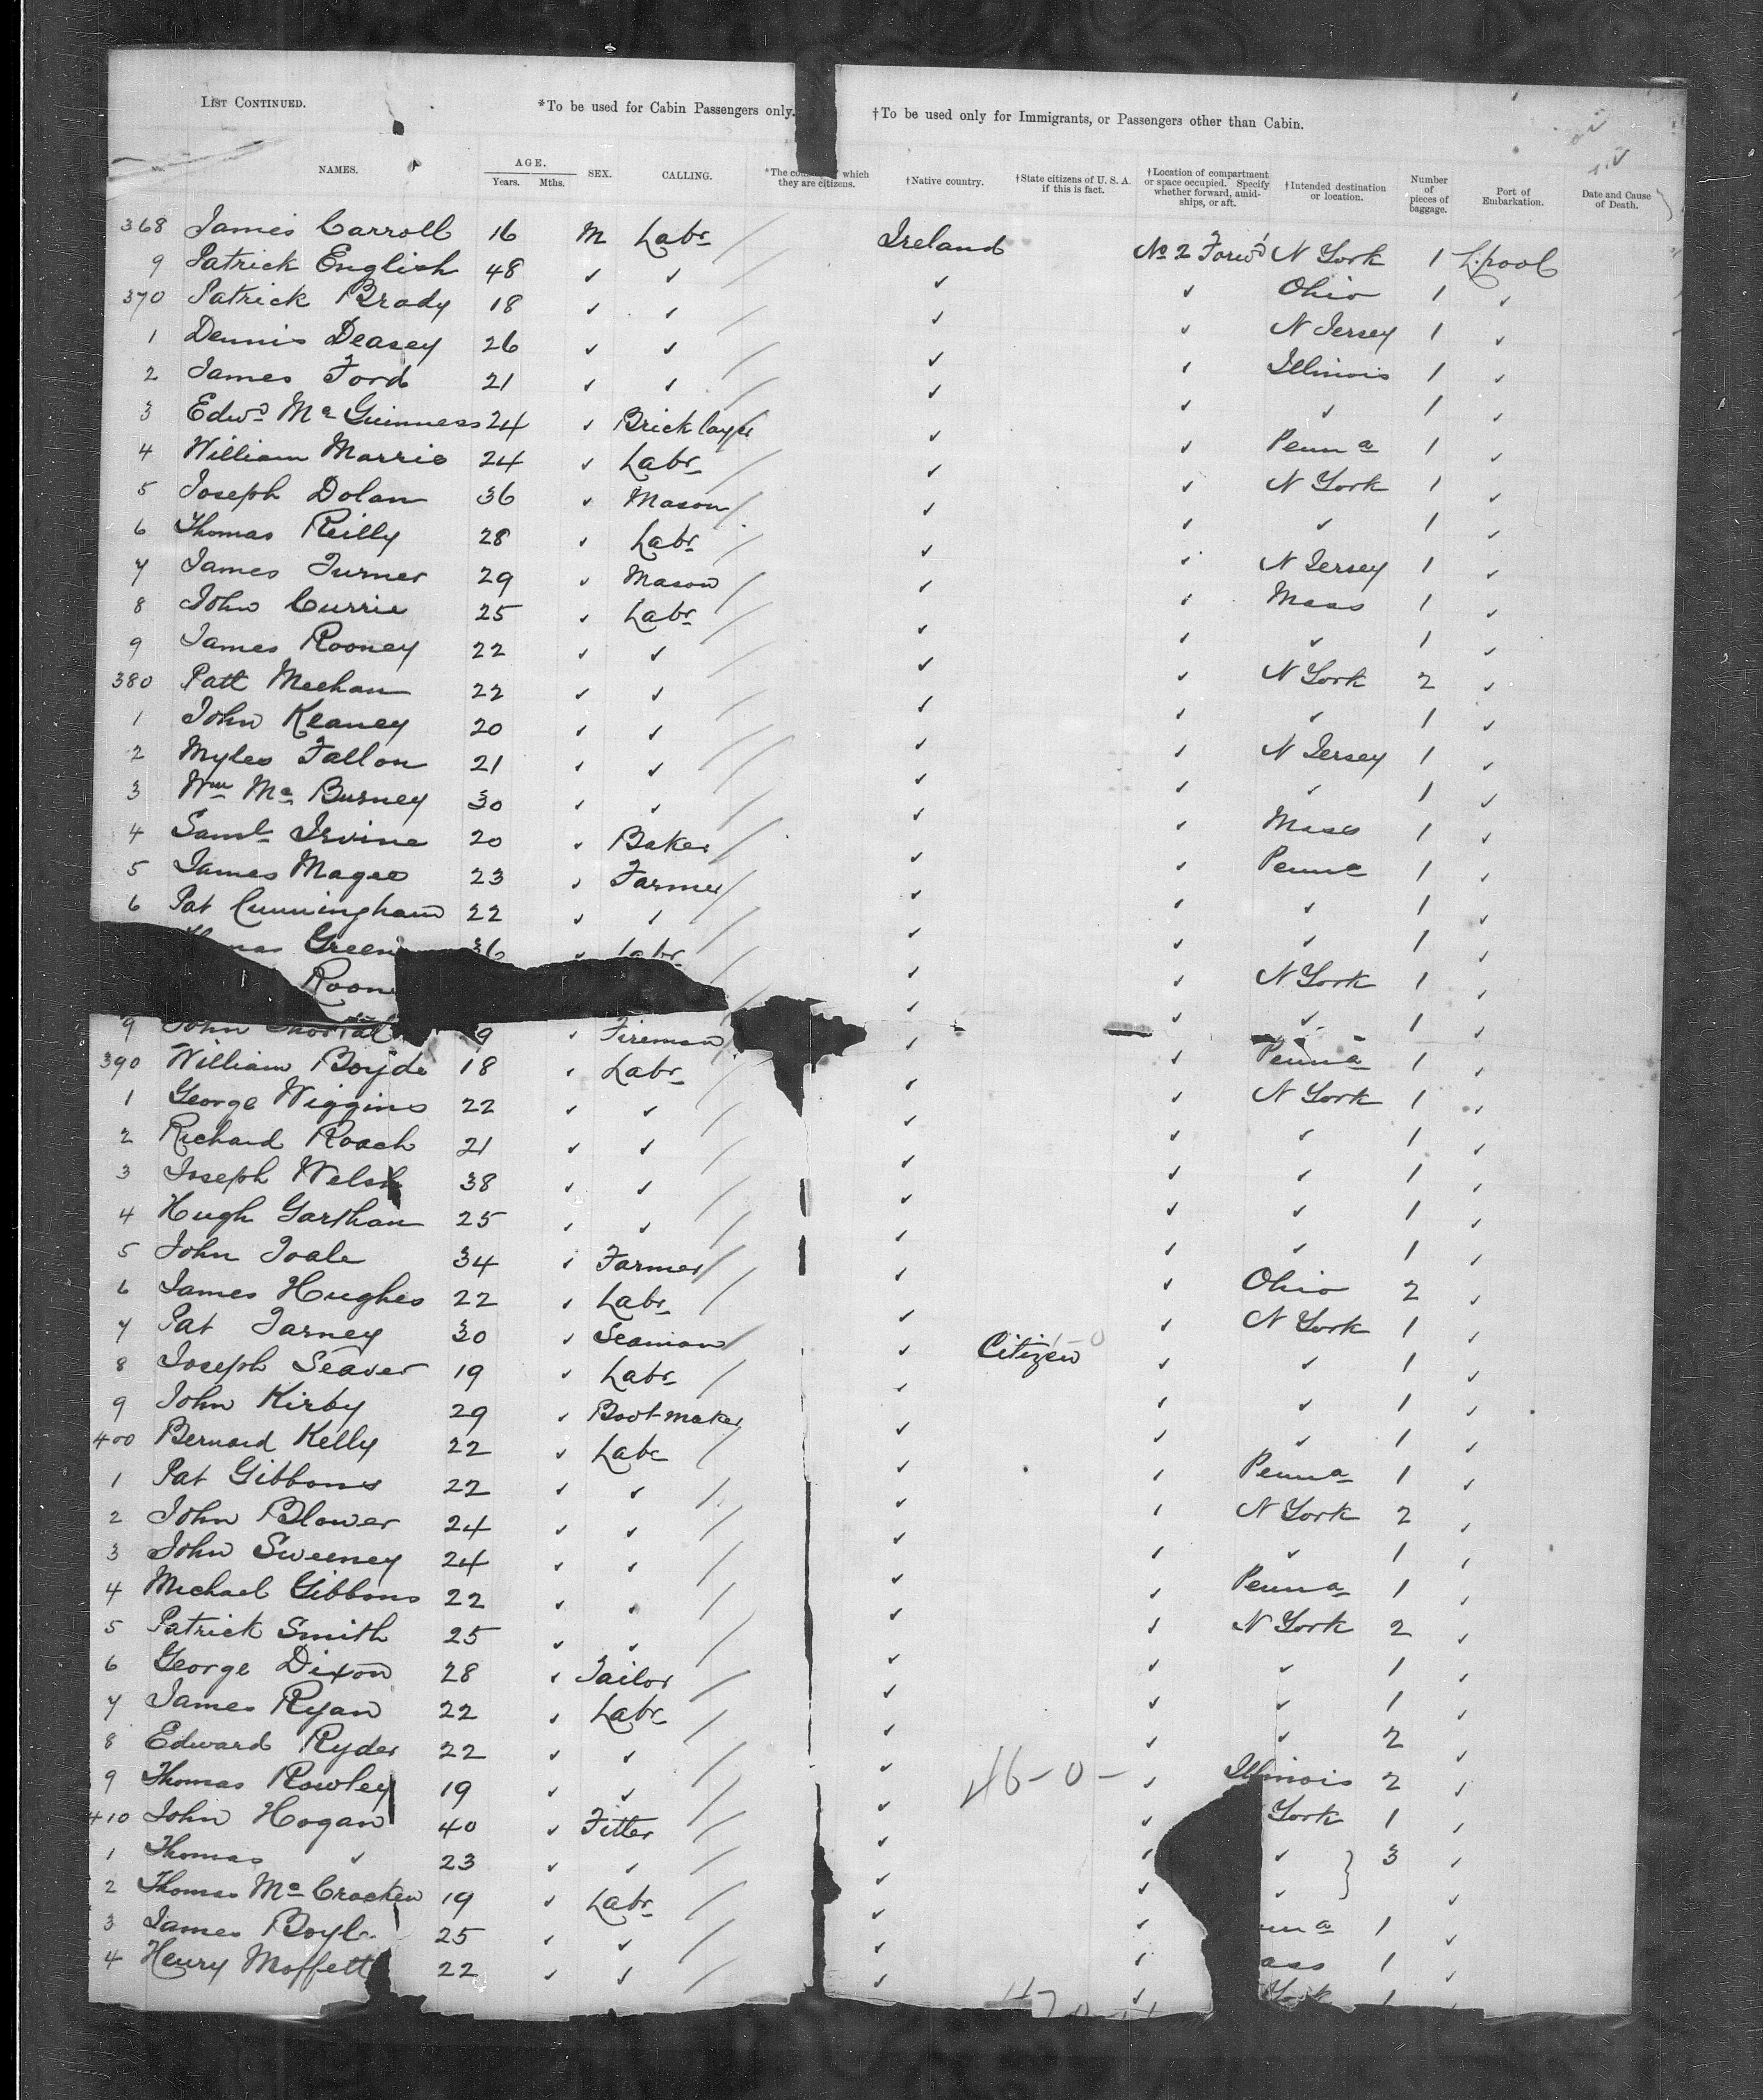 LIST CONTINUED. *To be used for Cabin Passengers only. †To be used only for Immigrants, or Passengers other than Cabin.
No. NAMES. AGE. Years. Mths. SEX. CALLING. *The coun which they are citizens. †Native country. †State citizens of U. S. A. if this is fact. †Location of compartment or space occupied. Specify whether forward, amid-ships, or aft. †Intended destination or location. Number of pieces of baggage. Port of Embarkation. Date and Cause of Death.
368 James Carroll 16 M Labr Ireland No 2 Forwd N York 1 L.pool
9 Patrick English 48 ✓ ✓ ✓ ✓ Ohio 1 ✓
370 Patrick Brady 18 ✓ ✓ ✓ ✓ N Jersey 1 ✓
1 Dennis Deasey 26 ✓ ✓ ✓ ✓ Illinois 1 ✓
2 James Ford 21 ✓ ✓ ✓ ✓ ✓ 1 ✓
3 Edwd Mc Guinness 24 ✓ Bricklayer ✓ ✓ Penna 1 ✓
4 William Morris 24 ✓ Labr ✓ ✓ N York 1 ✓
5 Joseph Dolan 36 ✓ Mason ✓ ✓ ✓ 1 ✓
6 Thomas Reilly 28 ✓ Labr ✓ ✓ N Jersey 1 ✓
7 James Turner 29 ✓ Mason ✓ ✓ Mass 1 ✓
8 John Currie 25 ✓ Labr ✓ ✓ ✓ 1 ✓
9 James Rooney 22 ✓ ✓ ✓ ✓ N York 2 ✓
380 Patt Meehan 22 ✓ ✓ ✓ ✓ ✓ 1 ✓
1 John Keaney 20 ✓ ✓ ✓ ✓ N Jersey 1 ✓
2 Myles Fallon 21 ✓ ✓ ✓ ✓ ✓ 1 ✓
3 Wm Mc Burney 30 ✓ ✓ ✓ ✓ Mass 1 ✓
4 Saml Irvine 20 ✓ Baker ✓ ✓ Penna 1 ✓
5 James Magee 23 ✓ Farmer ✓ ✓ ✓ 1 ✓
6 Pat Cunningham 22 ✓ ✓ ✓ ✓ ✓ 1 ✓
Thomas Green 36 ✓ Labr ✓ ✓ N York 1 ✓
Roone ✓ ✓ ✓ 1 ✓
9 John 9 ✓ Fireman ✓ ✓ Penna 1 ✓
390 William Boyde 18 ✓ Labr ✓ ✓ N York 1 ✓
1 George Wiggins 22 ✓ ✓ ✓ ✓ ✓ 1 ✓
2 Richard Roach 21 ✓ ✓ ✓ ✓ ✓ 1 ✓
3 Joseph Welsh 38 ✓ ✓ ✓ ✓ ✓ 1 ✓
4 Hugh Garthan 25 ✓ ✓ ✓ ✓ ✓ 1 ✓
5 John Toale 34 ✓ Farmer ✓ ✓ Ohio 2 ✓
6 James Hughes 22 ✓ Labr ✓ ✓ N York 1 ✓
7 Pat Tarney 30 ✓ Seaman ✓ Citizen ✓ ✓ 1 ✓
8 Joseph Seaver 19 ✓ Labr ✓ ✓ ✓ 1 ✓
9 John Kirby 29 ✓ Bootmaker ✓ ✓ ✓ 1 ✓
400 Bernard Kelly 22 ✓ Labr ✓ ✓ Penna 1 ✓
1 Pat Gibbons 22 ✓ ✓ ✓ ✓ N York 2 ✓
2 John Blower 24 ✓ ✓ ✓ ✓ ✓ 1 ✓
3 John Sweeney 24 ✓ ✓ ✓ ✓ Penna 1 ✓
4 Michael Gibbons 22 ✓ ✓ ✓ ✓ N York 2 ✓
5 Patrick Smith 25 ✓ ✓ ✓ ✓ ✓ 1 ✓
6 George Dixon 28 ✓ Tailor ✓ ✓ ✓ 1 ✓
7 James Ryan 22 ✓ Labr ✓ ✓ ✓ 2 ✓
8 Edward Ryder 22 ✓ ✓ ✓ 46-0- ✓ Illinois 2 ✓
9 Thomas Rowley 19 ✓ ✓ ✓ ✓ York 1 ✓
410 John Hogan 40 ✓ Fitter ✓ ✓ ✓ } 3 ✓
1 Thomas ✓ 23 ✓ ✓ ✓ ✓ ✓ ✓
2 Thomas Mc Cracken 19 ✓ Labr ✓ ✓ nna 1 ✓
3 James Boyle 25 ✓ ✓ ✓ ✓ ass 1 ✓
4 Henry Moffett 22 ✓ ✓ ✓ ✓ York 1 ✓